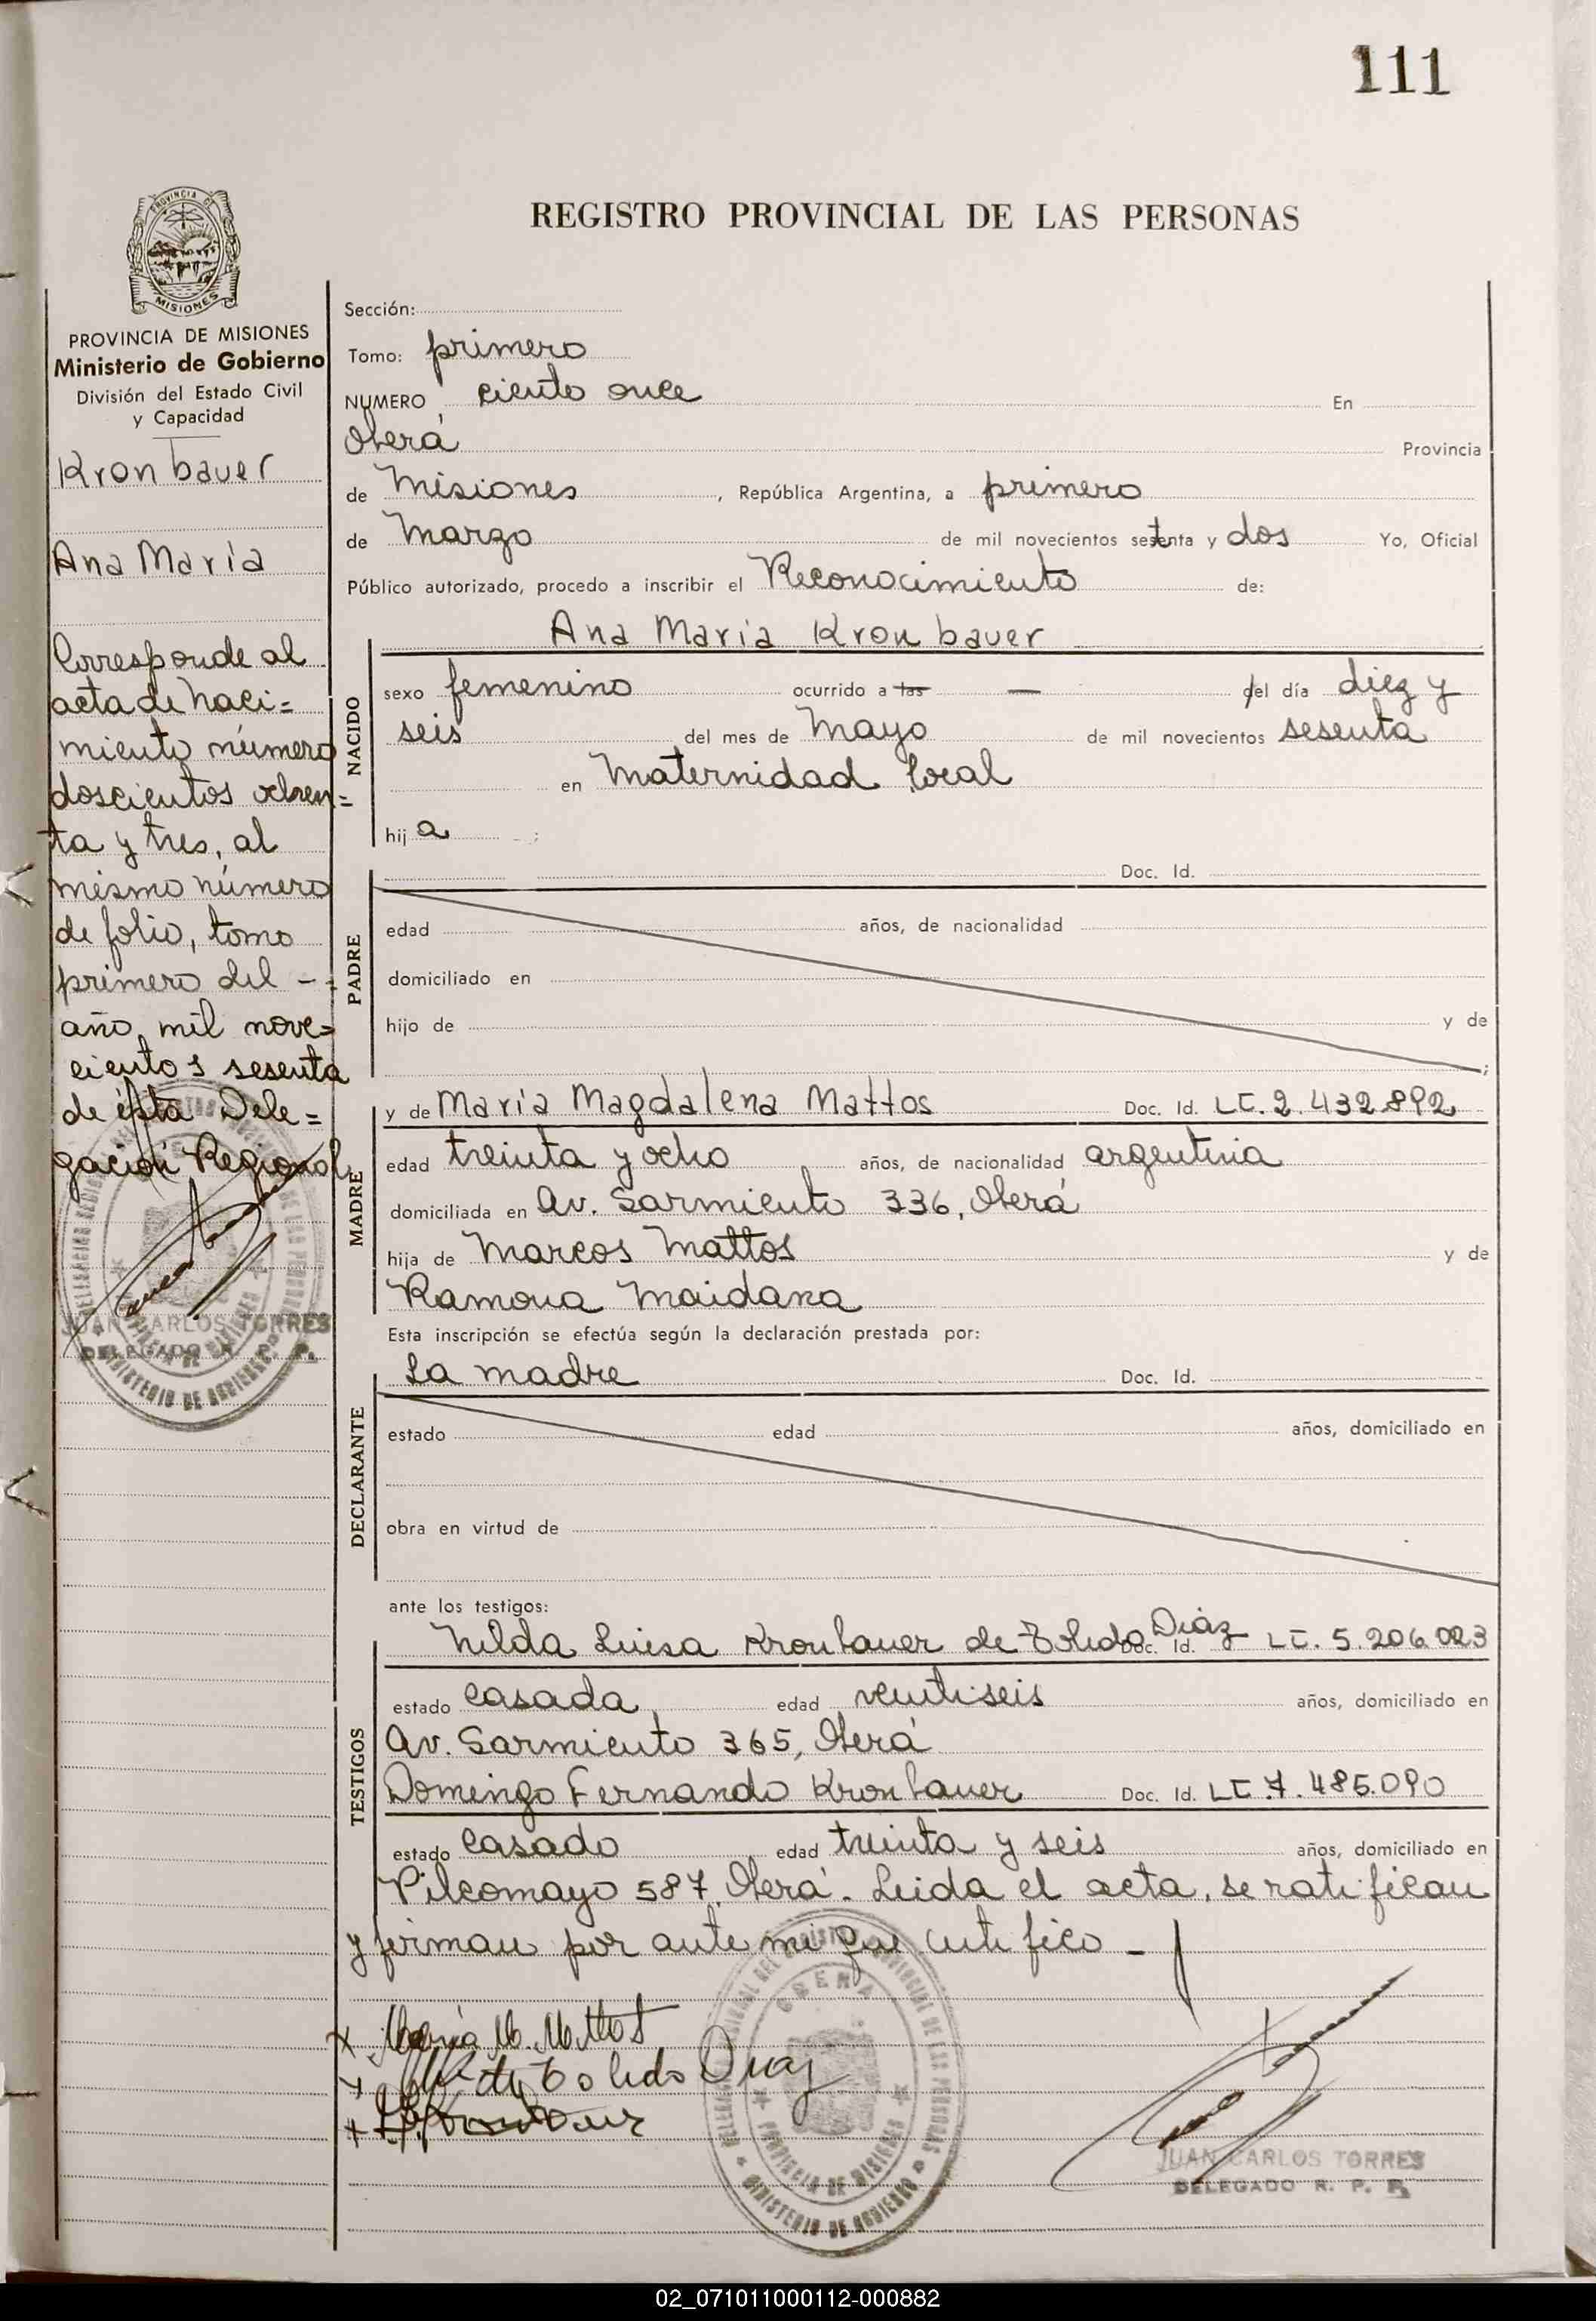 111
REGISTRO PROVINCIAL DE LAS PERSONAS
PROVINCIA DE
MISIONES
PROVINCIA DE MISIONES
Ministerio de Gobierno
División del Estado Civil
y Capacidad
Kronbauer
Ana María
Corresponde al
acta de naci=
miento número
doscientos ochen=
ta y tres, al
mismo número
de folio, tomo
primero del -
año, mil nove=
cientos sesenta
de ésta Dele=
gación Regional
JUAN CARLOS TORRES
DELEGADO R. P. P.
Sección:
Tomo: primero
NUMERO, ciento once En
Oberá Provincia
de Misiones, República Argentina, a primero
de Marzo de mil novecientos setenta y dos Yo, Oficial
Público autorizado, procedo a inscribir el Reconocimiento de:
NACIDO
Ana María Kronbauer
sexo femenino ocurrido a las — del día diez y
seis del mes de Mayo de mil novecientos sesenta
en Maternidad local
hij a ;
PADRE
Doc. Id.
edad años, de nacionalidad
domiciliado en
hijo de y de
;
MADRE
y de María Magdalena Mattos Doc. Id. LC. 2.432.892
edad treinta y ocho años, de nacionalidad argentina
domiciliada en Av. Sarmiento 336, Oberá
hija de Marcos Mattos y de
Ramona Maidana
Esta inscripción se efectúa según la declaración prestada por:
DECLARANTE
La madre Doc. Id.
estado edad años, domiciliado en
obra en virtud de
ante los testigos:
TESTIGOS
Nilda Luisa Kronbauer de Toledo Díaz Doc. Id. LC. 5.206.023
estado casada, edad veintiseis años, domiciliado en
Av. Sarmiento 365, Oberá
Domingo Fernando Kronbauer Doc. Id. LE. 7.485.090
estado casado edad treinta y seis años, domiciliado en
Pilcomayo 587, Oberá. Leida el acta, se ratifican
y firman por ante mi que certifico -
x María M. Mattos
x de Toledo Diaz
x Kronbauer
OBERA
PROVINCIA DE MISIONES
MINISTERIO DE GOBIERNO
JUAN CARLOS TORRES
DELEGADO R. P. P.
02_071011000112-000882